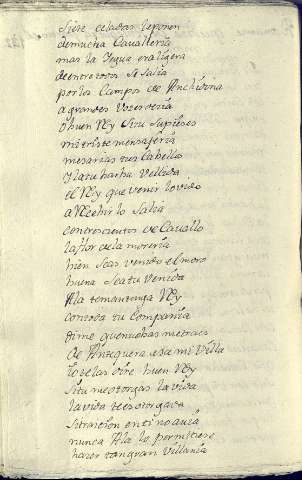 Siete celadas le ponen
de mucha Cavalleria
mas la Yegua era ligera
de entre todos se salia
por los Campos de Archidona
a grandes vozes venia
o buen Rey si tu supieses
mi triste mensageria
mesarias tus Cabellos
y la tu barba Vellida
el Rey que venir lo vido
a Recivirlo salia
con trescientos de Cavallo
la flor de la moreria
bien seas venido el moro
buena sea tu venida
Ala te mantenga Rey
con toda tu Compañia
dime que nuebas me traes
de Antequera esa mi Villa
yo te las dire buen Rey
si tu me otorgas la vida
la vida te es otorgada
si traicion en ti no avia
nunca Ala lo permitiese
hazer tan gran Villania